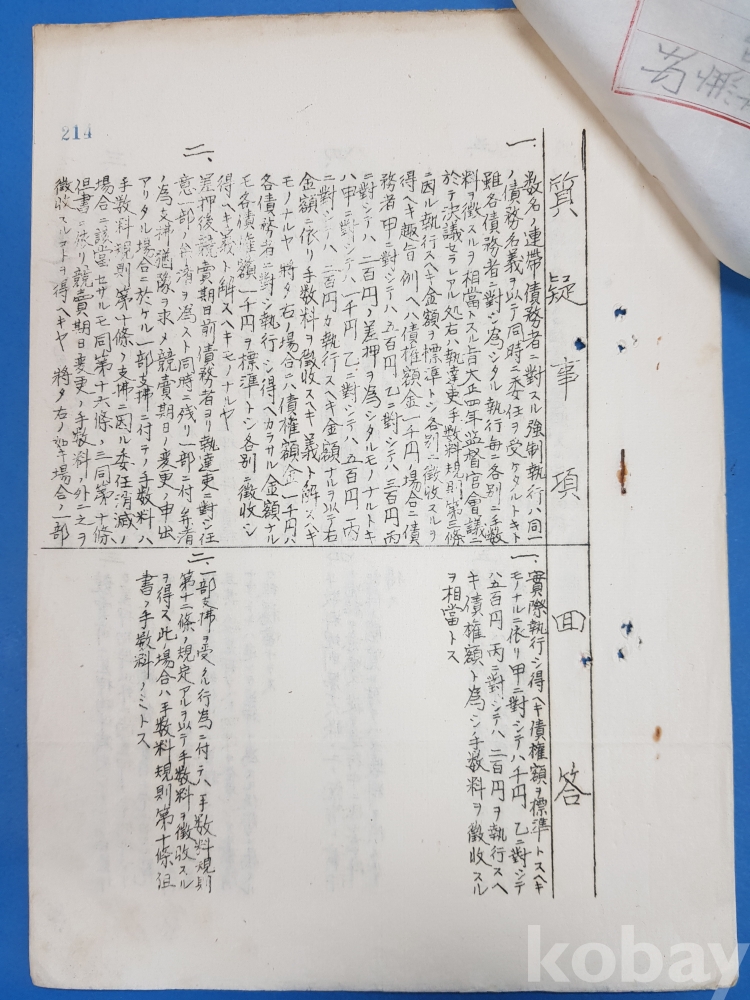 214
質疑事項
一、数名ノ連帯債務者ニ對スル強制執行ハ同一
ノ債務名義ヲ以テ同時ニ委任ヲ受ケタルトキト
雖各債務者ニ對シ為シタル執行毎ニ各別ニ手数
料ヲ徴スルヲ相當トスル旨大正四年監督官會議ニ
於テ決議セラレアル処右ハ執達吏手数料規則第三條
ニ因ル執行スヘキ金額ヲ標準トシ各別ニ徴收スルヲ
得ヘキ趣旨例ヘハ債権額金一千円ノ場合ニ債
務者甲ニ對シテハ五百円乙ニ對シテハ三百円丙
ニ對シテハ二百円ノ差押ヲ為シタルモノナルトキ
ハ甲ニ對シテハ一千円乙ニ對シテハ五百円丙
ニ對シテハ二百円カ執行スヘキ金額ナルヲ以テ右
金額ニ依リ手数料ヲ徴收スヘキ義ト解スヘキ
モノナルヤ将タ右ノ場合ニハ債権額金一千円ハ
各債務者ニ對シ執行シ得ヘカラサル金額ナル
モ各債権額一千円ヲ標準トシ各別ニ徴收シ
得ヘキ義ト解スヘキモノナルヤ
二、差押後競賣期日前債務者ヨリ執達吏ニ對シ任
意一部ノ弁済ヲ為スト同時ニ残リ一部ニ付弁済
ノ為支拂猶豫ヲ求メ競賣期日ノ変更ノ申出
アリタル場合ニ於ケル一部支拂ニ付テノ手数料ハ
手数料規則第十條ノ支拂ニ因ル委任消滅ノ
場合ニ該當セサルモ同第十六條ノ三同第十條
但書ニ依リ競賣期日変更ノ手数料ノ外ニ之ヲ
徴收スルコトヲ得ヘキヤ将タ右ノ如キ場合ノ一部
回答
一、實際執行シ得ヘキ債権額ヲ標準トスヘキ
モノナルニ依リ甲ニ對シテハ千円乙ニ對シテ
ハ五百円丙ニ對シテハ二百円ヲ執行スヘ
キ債権額ト為シ手数料ヲ徴收スル
ヲ相當トス
二、一部支拂ヲ受クル行為ニ付テハ手数料規則
第十二條ノ規定アルヲ以テ手数料ヲ徴收スル
ヲ得ス此ノ場合ハ手数料規則第十條但
書ノ手数料ノミトス
kobay